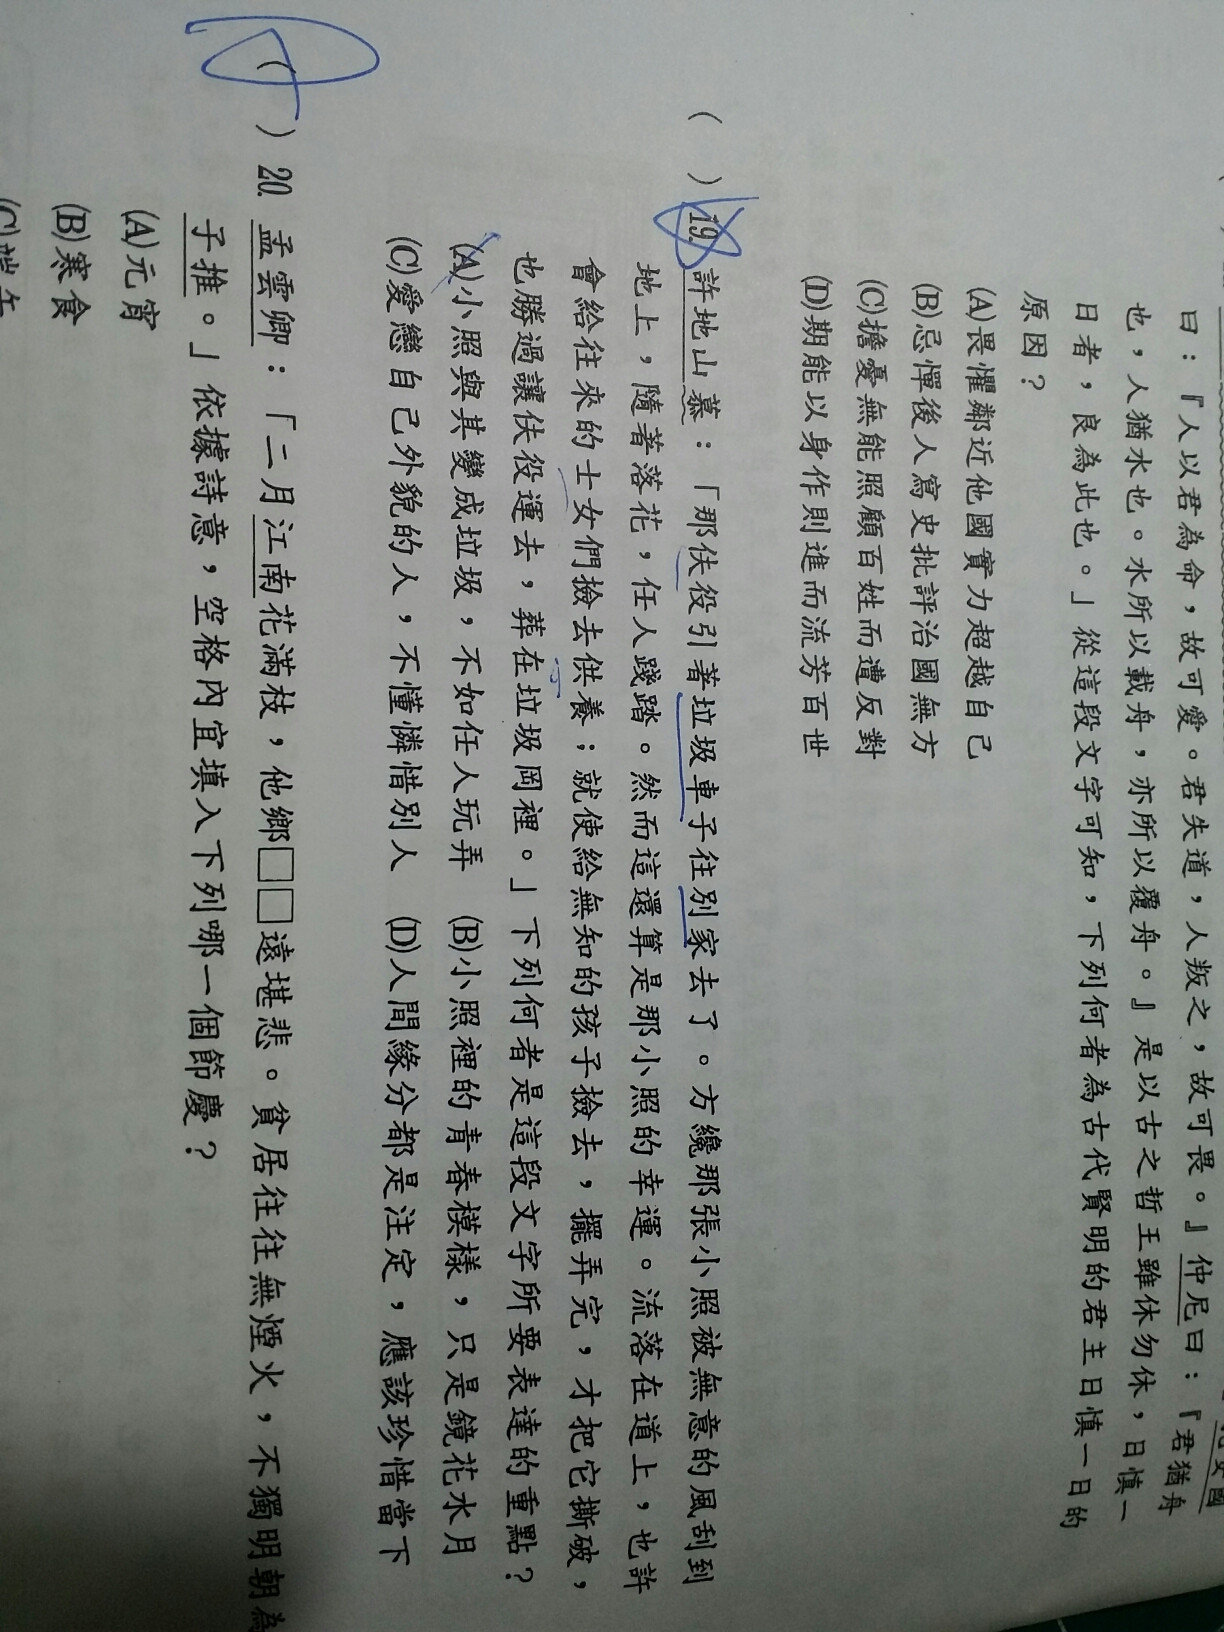 曰：『人以君為命，故可愛。君失道，人叛之，故可畏。』仲尼曰：『君猶舟
也，人猶水也。水所以載舟，亦所以覆舟。』是以古之哲王雖休勿休，日慎一
日者，良為此也。」從這段文字可知，下列何者為古代賢明的君主日慎一日的
原因？
(A)畏懼鄰近他國實力超越自己
(B)忌憚後人寫史批評治國無方
(C)擔憂無能照顧百姓而遭反對
(D)期能以身作則進而流芳百世
( ) 19. 許地山 慕：「那伕役引著垃圾車子往別家去了。方纔那張小照被無意的風刮到
地上，隨著落花，任人踐踏。然而這還算是那小照的幸運。流落在道上，也許
會給往來的士女們撿去供養；就使給無知的孩子撿去，擺弄完，才把它撕破，
也勝過讓伕役運去，葬在垃圾岡裡。」下列何者是這段文字所要表達的重點？
(A)小照與其變成垃圾，不如任人玩弄 (B)小照裡的青春模樣，只是鏡花水月
(C)愛戀自己外貌的人，不懂憐惜別人 (D)人間緣分都是注定，應該珍惜當下
( ) 20. 孟雲卿：「二月江南花滿枝，他鄉□□遠堪悲。貧居往往無煙火，不獨明朝為
子推。」依據詩意，空格內宜填入下列哪一個節慶？
(A)元宵
(B)寒食
(C)端午